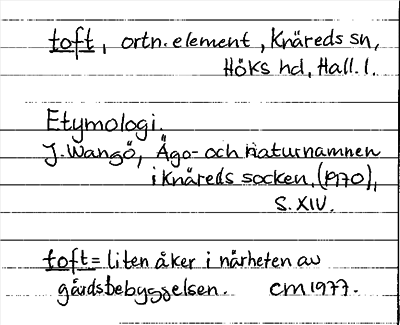 toft, ortn. element, Knäreds sn,
Höks hd, Hall. l.
Etymologi.
J. Wangö, Ägo- och naturnamnen
i Knäreds socken, (1970),
s. XIV.
toft = liten åker i närheten av
gårdsbebyggelsen. CM 1977.